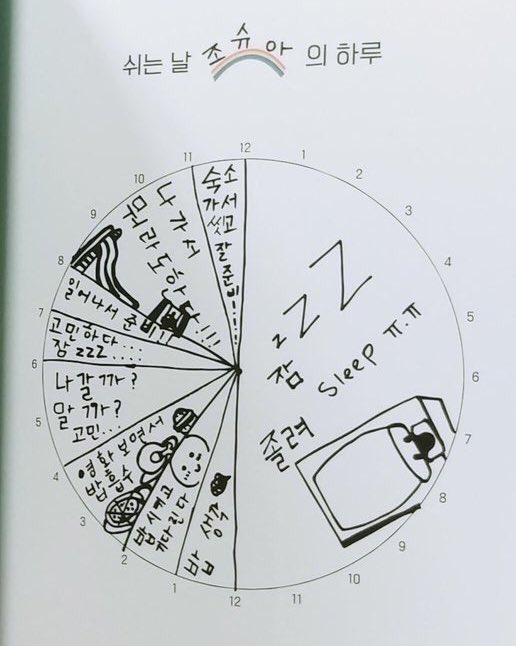 쉬는 날 조슈아의 하루
12
1
2
3
4
5
6
7
8
9
10
11
12
1
2
3
4
5
6
7
8
9
10
11
zZZ
잠 sleep ㅠ.ㅠ
졸려
밥 생각
밥 시키고
기다린다
영화 보면서
밥 흡수
나갈까?
말까?
고민...
고민하다
잠 zzz....
일어나서 준비!!
나가서
뭐라도 하다!!!
숙소
가서
씻고
잘
준비!...